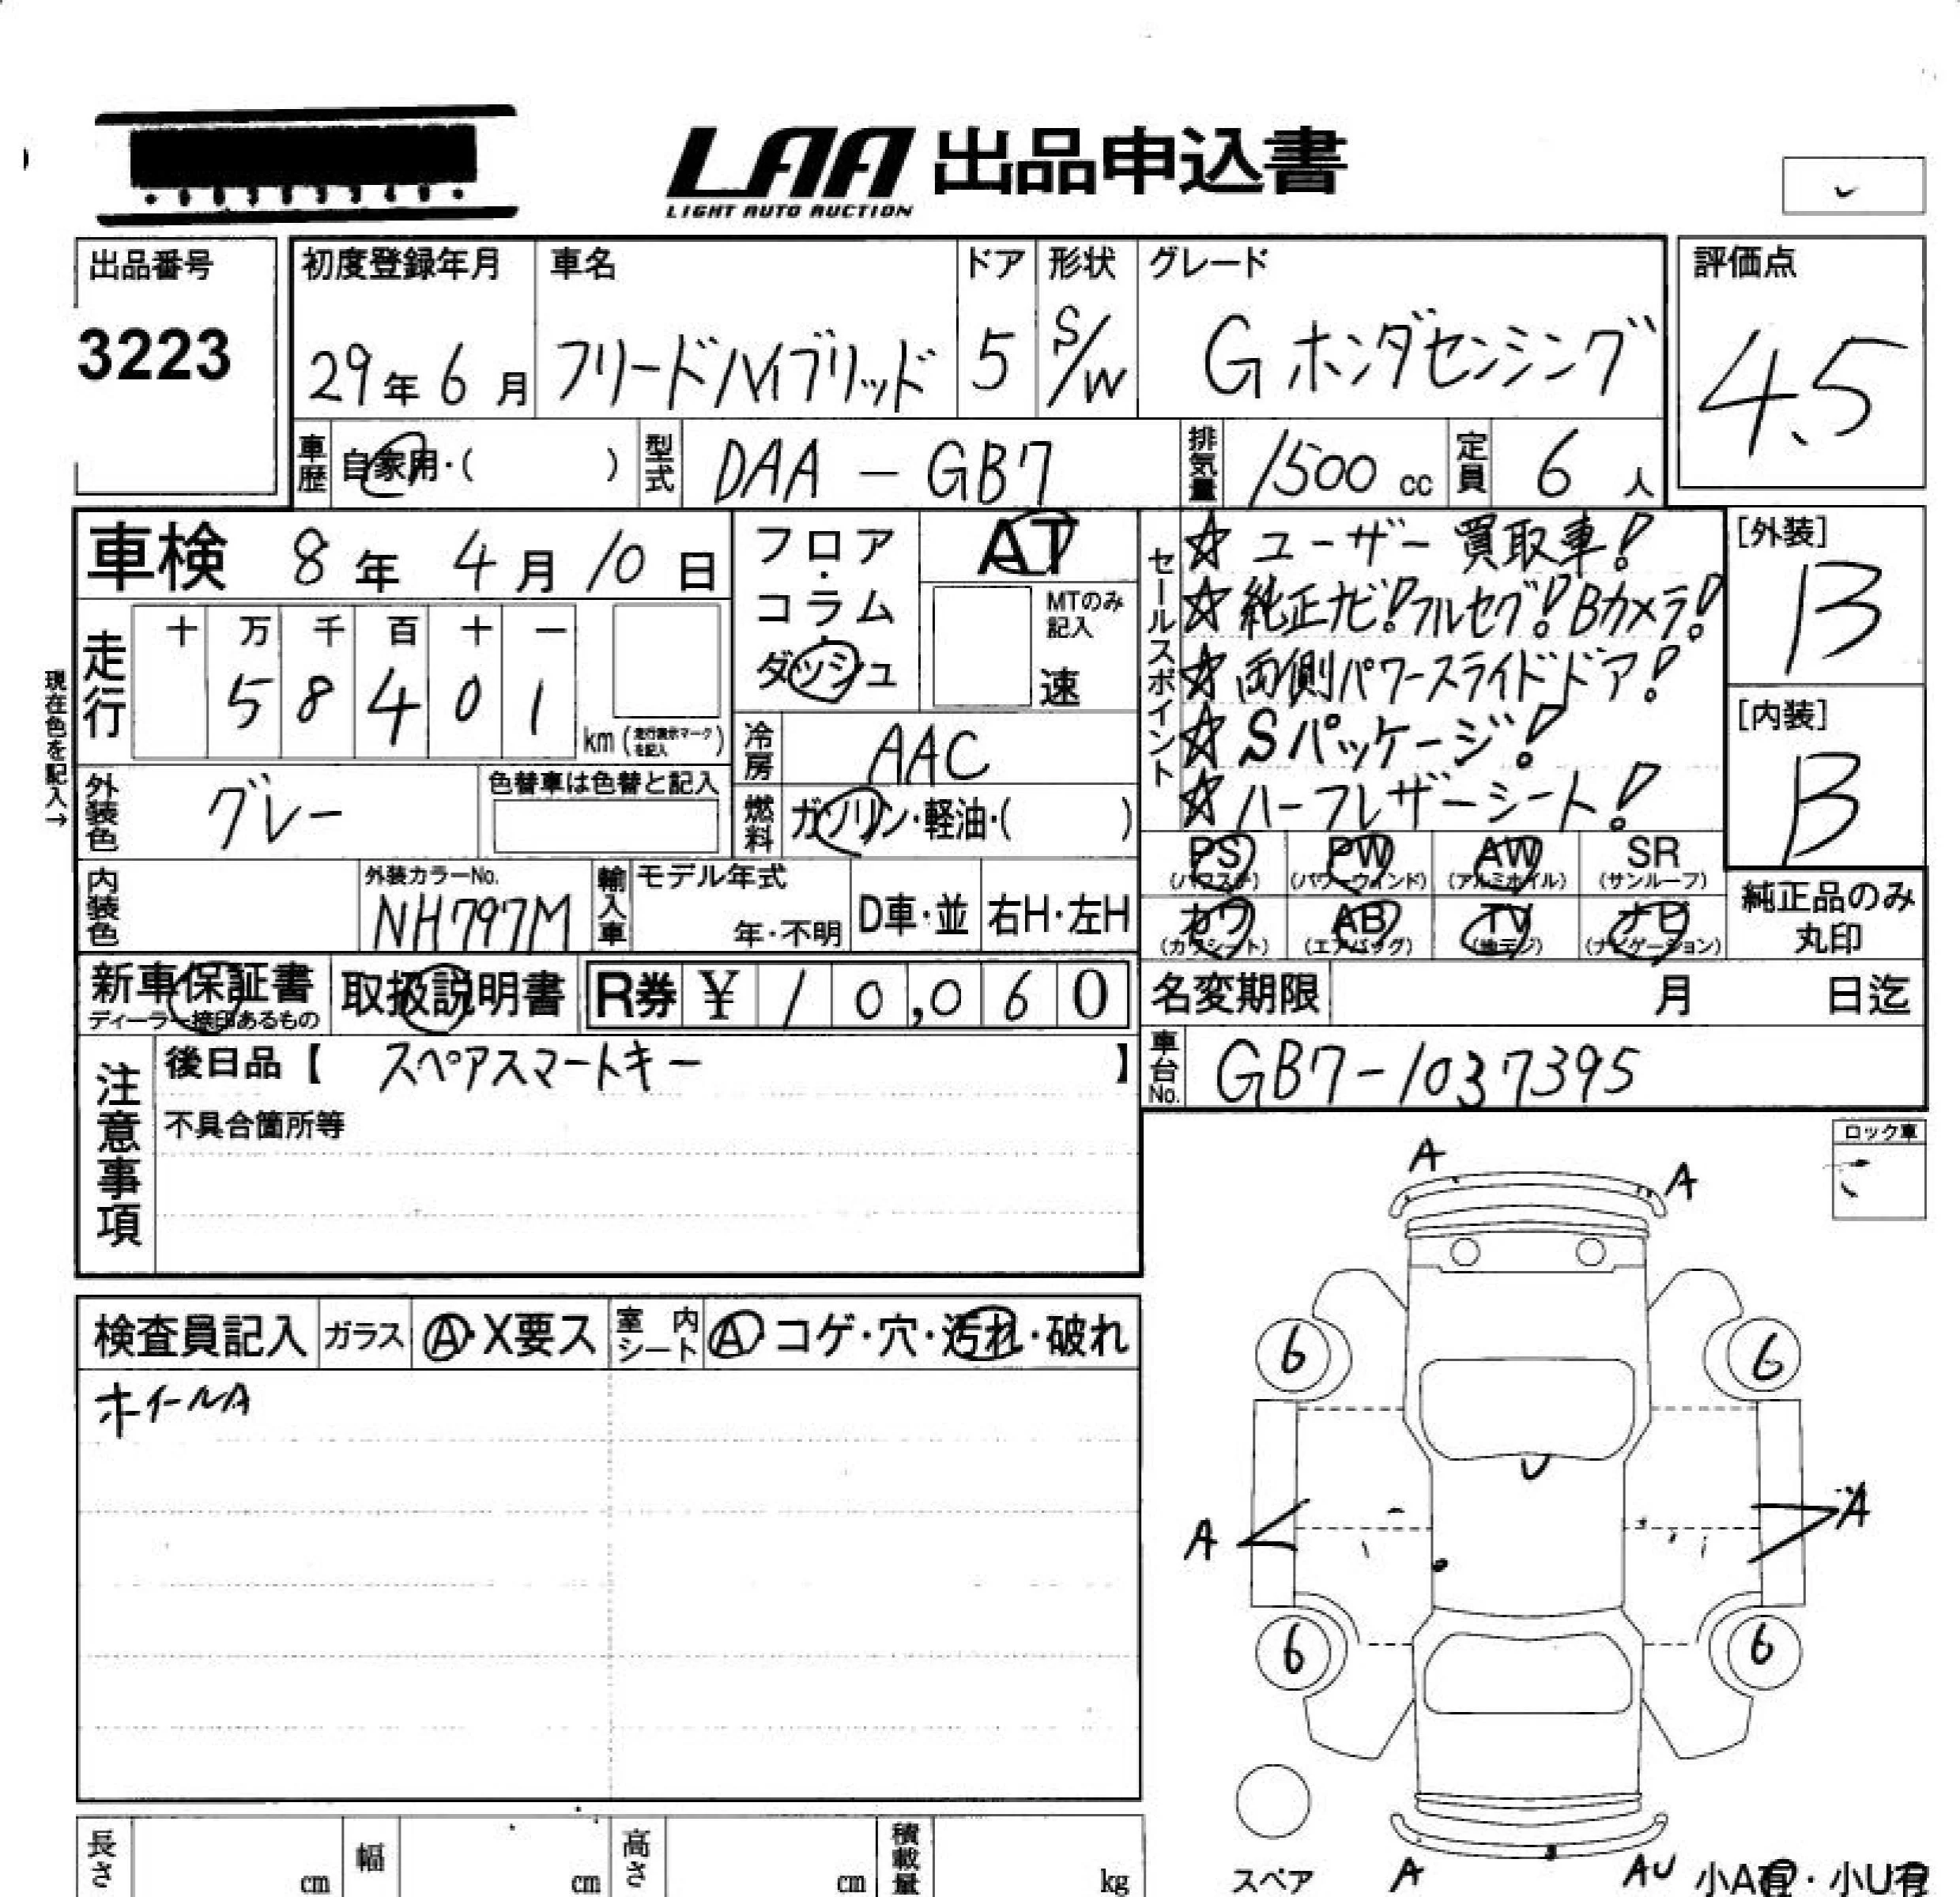 LAA 出品申込書
LIGHT AUTO AUCTION
出品番号
3223
初度登録年月
29年6月
車名
フリードハイブリッド
ドア
5
形状
S/W
グレード
G ホンダセンシング
評価点
4.5
車歴 自家用・( )
型式 DAA-GB7
排気量 1500 cc
定員 6 人
車検 8年 4月 10日
フロア・コラム・ダッシュ
AT
MTのみ記入
速
セールスポイント
☆ ユーザー買取車!
☆ 純正ナビ!フルセグ!Bカメラ!
☆ 両側パワースライドドア!
☆ Sパッケージ!
☆ ハーフレザーシート!
[外装]
B
[内装]
B
現在色を記入→
走行
十 万 千 百 十 一
5 8 4 0 1
km (走行表示マークを記入)
冷房 AAC
外装色 グレー
色替車は色替と記入
燃料 ガソリン・軽油・( )
内装色
外装カラーNo.
NH797M
輸入車
モデル年式
年・不明
D車・並
右H・左H
PS (パワステ)
PW (パワーウィンド)
AW (アルミホイル)
SR (サンルーフ)
カワ (カワシート)
AB (エアバッグ)
TV (地デジ)
ナビ (ナビゲーション)
純正品のみ丸印
新車保証書
ディーラー捺印あるもの
取扱説明書
R券 ¥ 10,060
名変期限 月 日迄
車台No. GB7-1037395
注意事項
後日品【 スペアスマートキー 】
不具合箇所等
ロック車
検査員記入
ガラス A・X要ス
室内シート A・コゲ・穴・汚れ・破れ
ホイールA
A
A
6
6
U
A
A
6
6
スペア
A
AU
小A有・小U有
長さ cm
幅 cm
高さ cm
積載量 kg